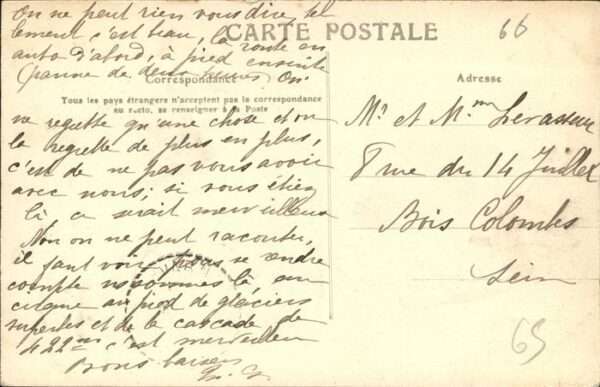 On ne peut rien vous dire, tel
lement c'est beau, la route en
auto d'abord, à pied ensuite
(panne de deux heures) On
CARTE POSTALE
66
Correspondance
Tous les pays étrangers n'acceptent pas la correspondance
au recto, se renseigner à la Poste
ne regrette qu'une chose et on
la regrette de plus en plus,
c'est de ne pas vous avoir
avec nous; si vous étiez
là ce serait merveilleux
Non on ne peut raconter,
il faut voir pour se rendre
compte nous sommes là au
cirque au pied de glaciers
superbes et de la cascade de
422 m c'est merveilleux
Bons baisers
Adresse
Mr et Mme Levasseur
8 rue du 14 Juillet
Bois Colombes
Seine
65